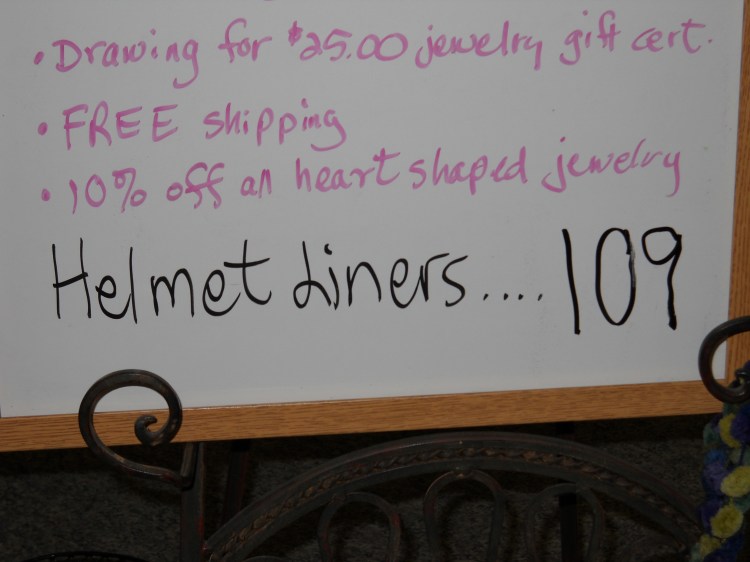 • Drawing for $25.00 jewelry gift cert.
• FREE shipping
• 10% off all heart shaped jewelry
Helmet Liners.... 109